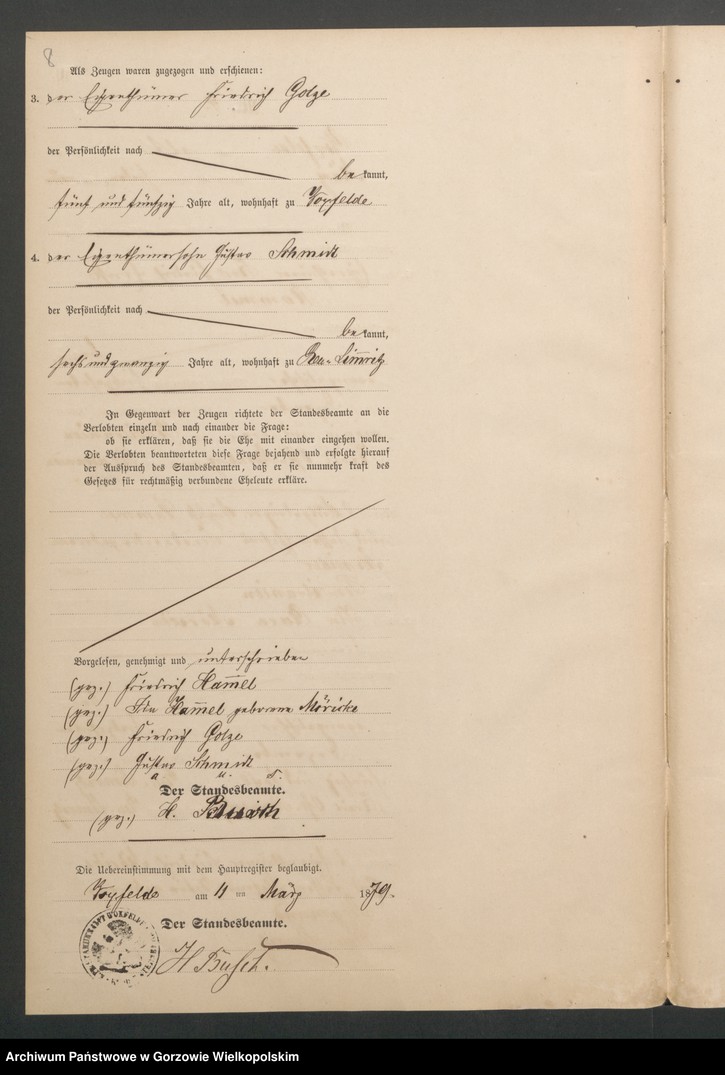 8
Als Zeugen waren zugezogen und erschienen:
3. der Eigenthümer Friedrich Golze
der Persönlichkeit nach
be kannt,
fünf und fünfzig Jahre alt, wohnhaft zu Woxfelde
4. der Eigenthümersohn Gustav Schmidt
der Persönlichkeit nach
be kannt,
sechsundzwanzig Jahre alt, wohnhaft zu Neu-Limmritz
In Gegenwart der Zeugen richtete der Standesbeamte an die
Verlobten einzeln und nach einander die Frage:
ob sie erklären, daß sie die Ehe mit einander eingehen wollen.
Die Verlobten beantworteten diese Frage bejahend und erfolgte hierauf
der Ausspruch des Standesbeamten, daß er sie nunmehr kraft des
Gesetzes für rechtmäßig verbundene Eheleute erkläre.
Vorgelesen, genehmigt und unterschrieben
(gez.) Friedrich Hammel
(gez.) Ida Hammel geborene Möricke
(gez.) Friedrich Golze
(gez.) Gustav Schmidt
a. u. s.
Der Standesbeamte.
(gez.) H.
Die Uebereinstimmung mit dem Hauptregister beglaubigt.
Woxfelde am 11 ten März 1879.
Der Standesbeamte.
H Busch.
WOXFELDE
Archiwum Państwowe w Gorzowie Wielkopolskim